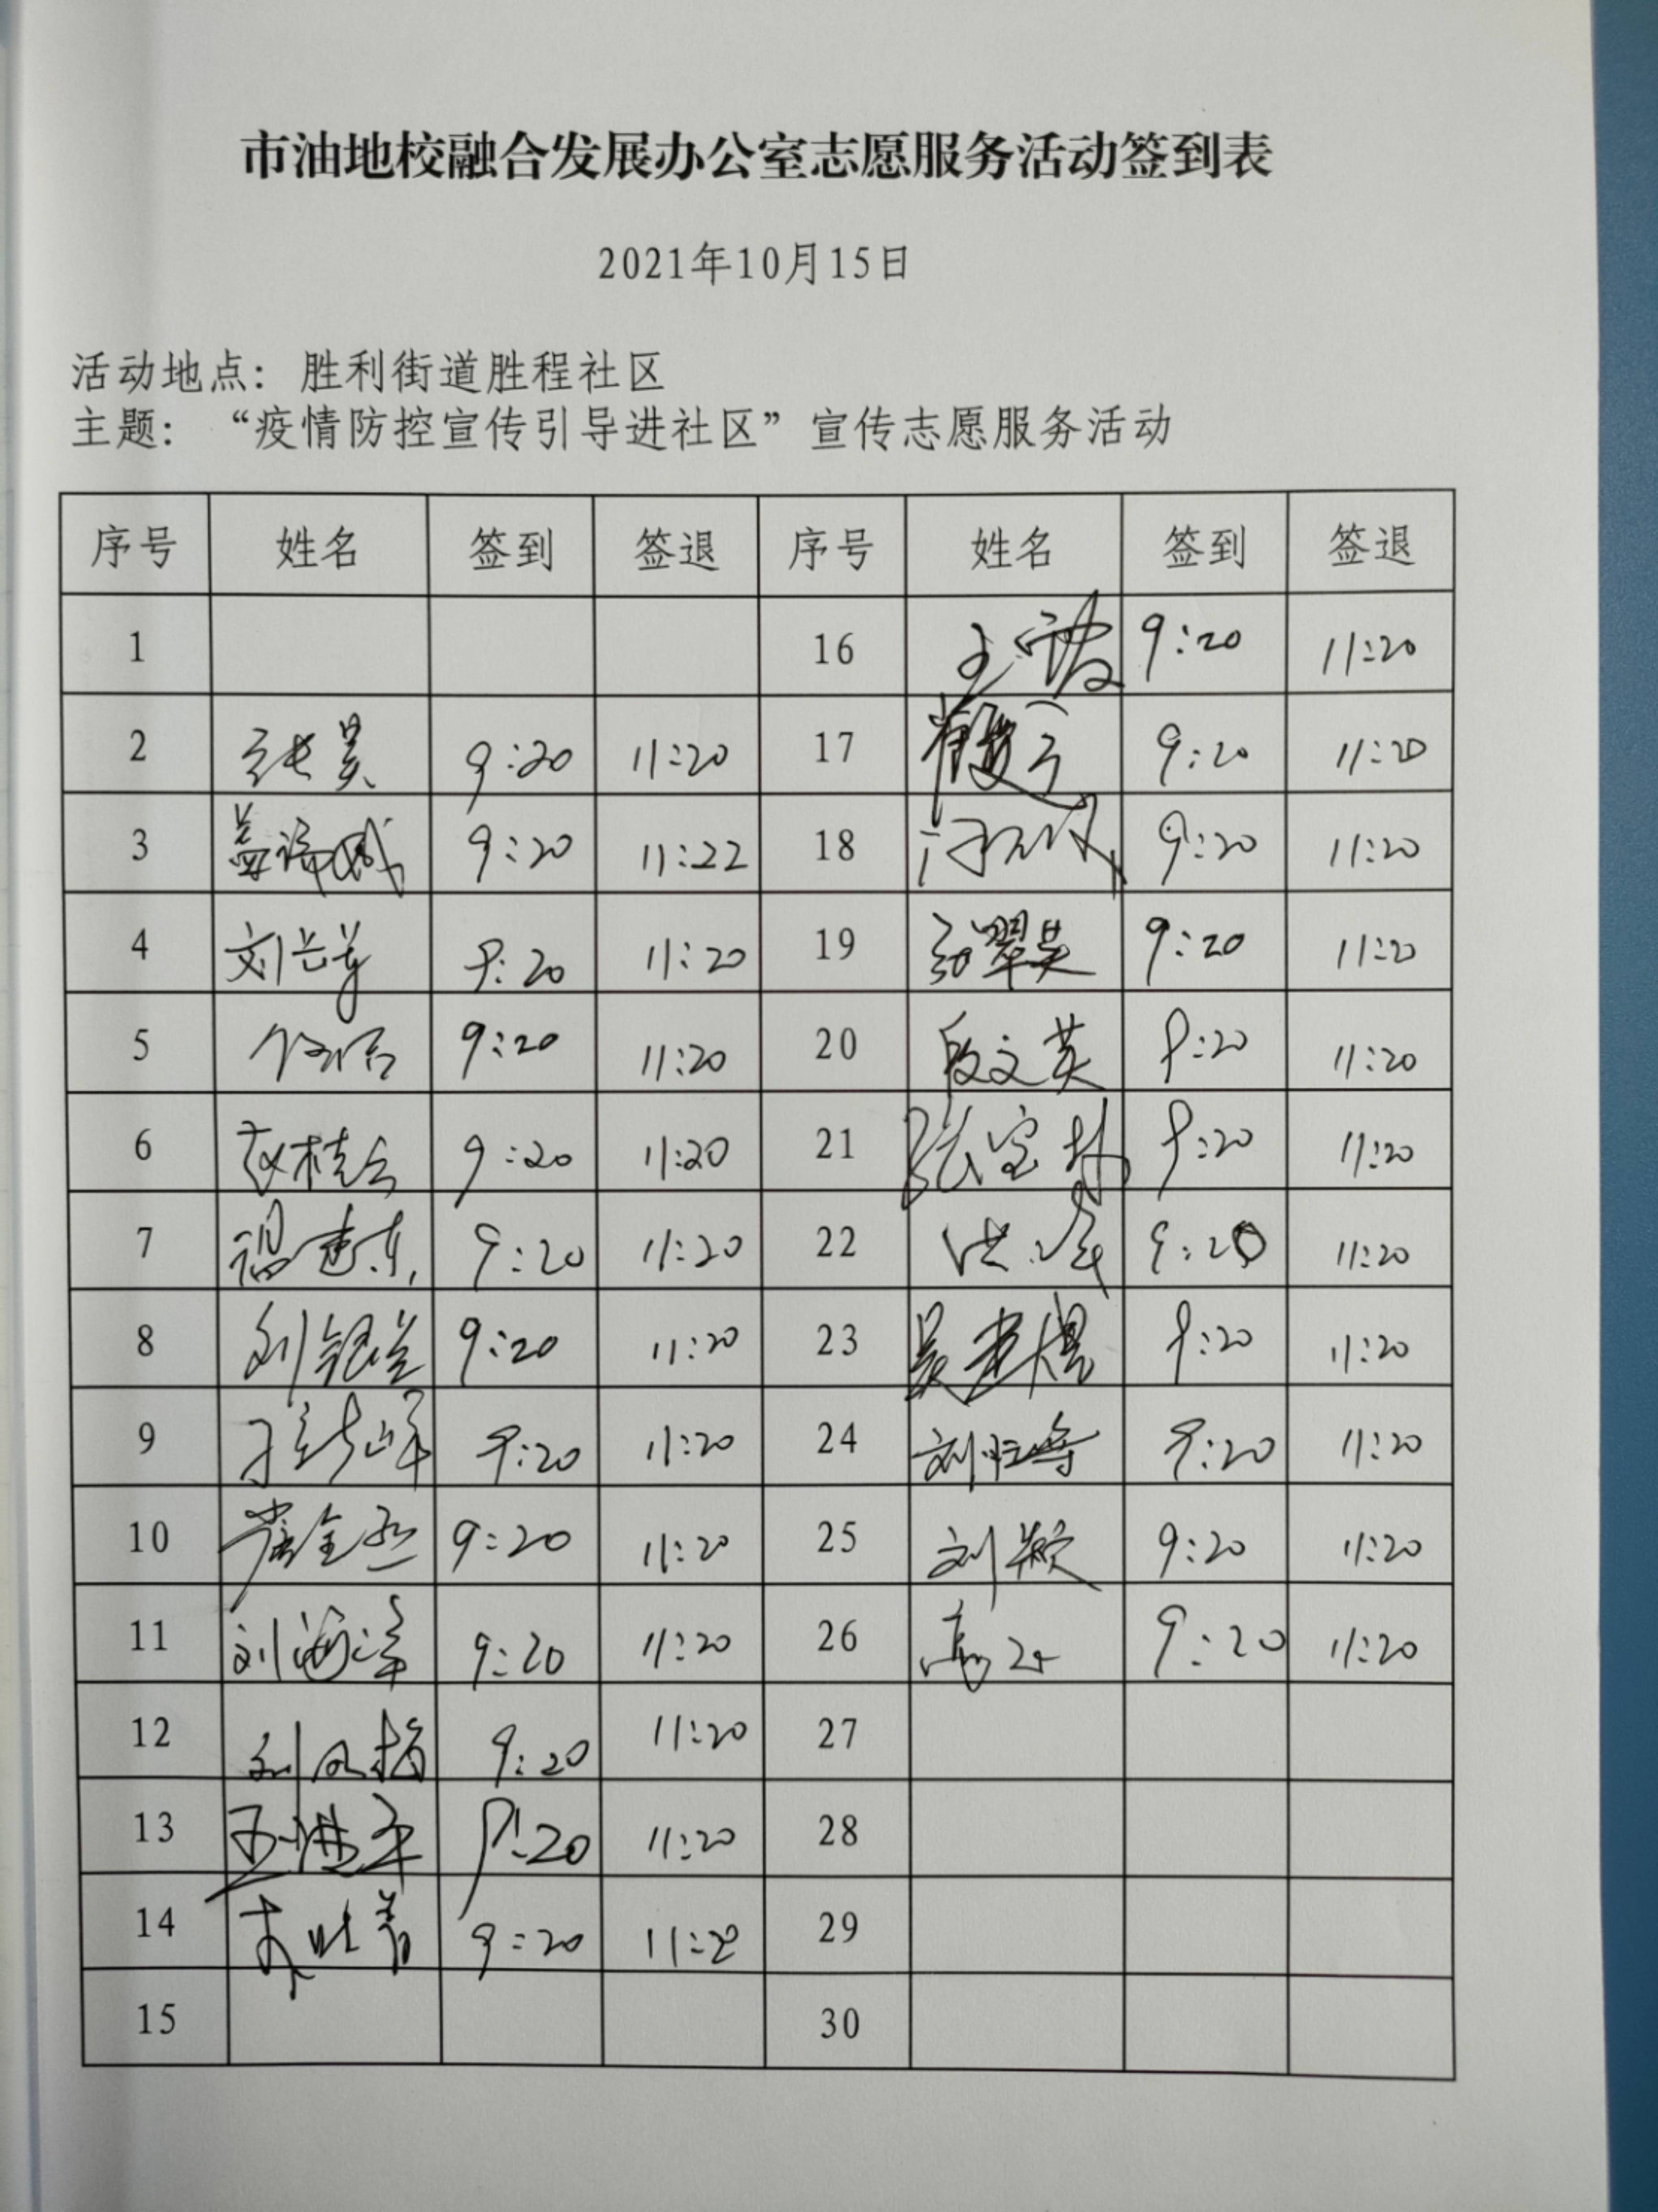 市油地校融合发展办公室志愿服务活动签到表
2021年10月15日
活动地点：胜利街道胜程社区
主题：“疫情防控宣传引导进社区”宣传志愿服务活动
序号 姓名 签到 签退 序号 姓名 签到 签退
1 16 9:20 11:20
2 张昊 9:20 11:20 17 9:20 11:20
3 9:20 11:22 18 9:20 11:20
4 9:20 11:20 19 张翠昊 9:20 11:20
5 9:20 11:20 20 段文英 9:20 11:20
6 赵桂云 9:20 11:20 21 张宝林 9:20 11:20
7 9:20 11:20 22 洪峰 9:20 11:20
8 刘银兰 9:20 11:20 23 9:20 11:20
9 9:20 11:20 24 9:20 11:20
10 9:20 11:20 25 刘颖 9:20 11:20
11 刘海洋 9:20 11:20 26 9:20 11:20
12 9:20 11:20 27
13 9:20 11:20 28
14 9:20 11:20 29
15 30